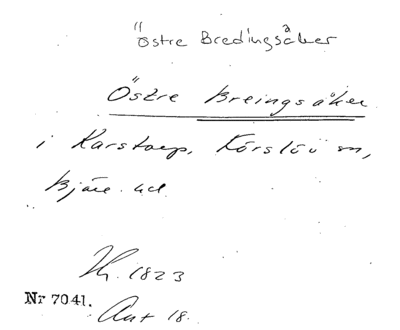 Östre Bredingsåker
Östre Breingsåker
i Karstorp, Förslöv sn,
Bjäre hd
Th. 1823
Nr 7041.
Ant 18.